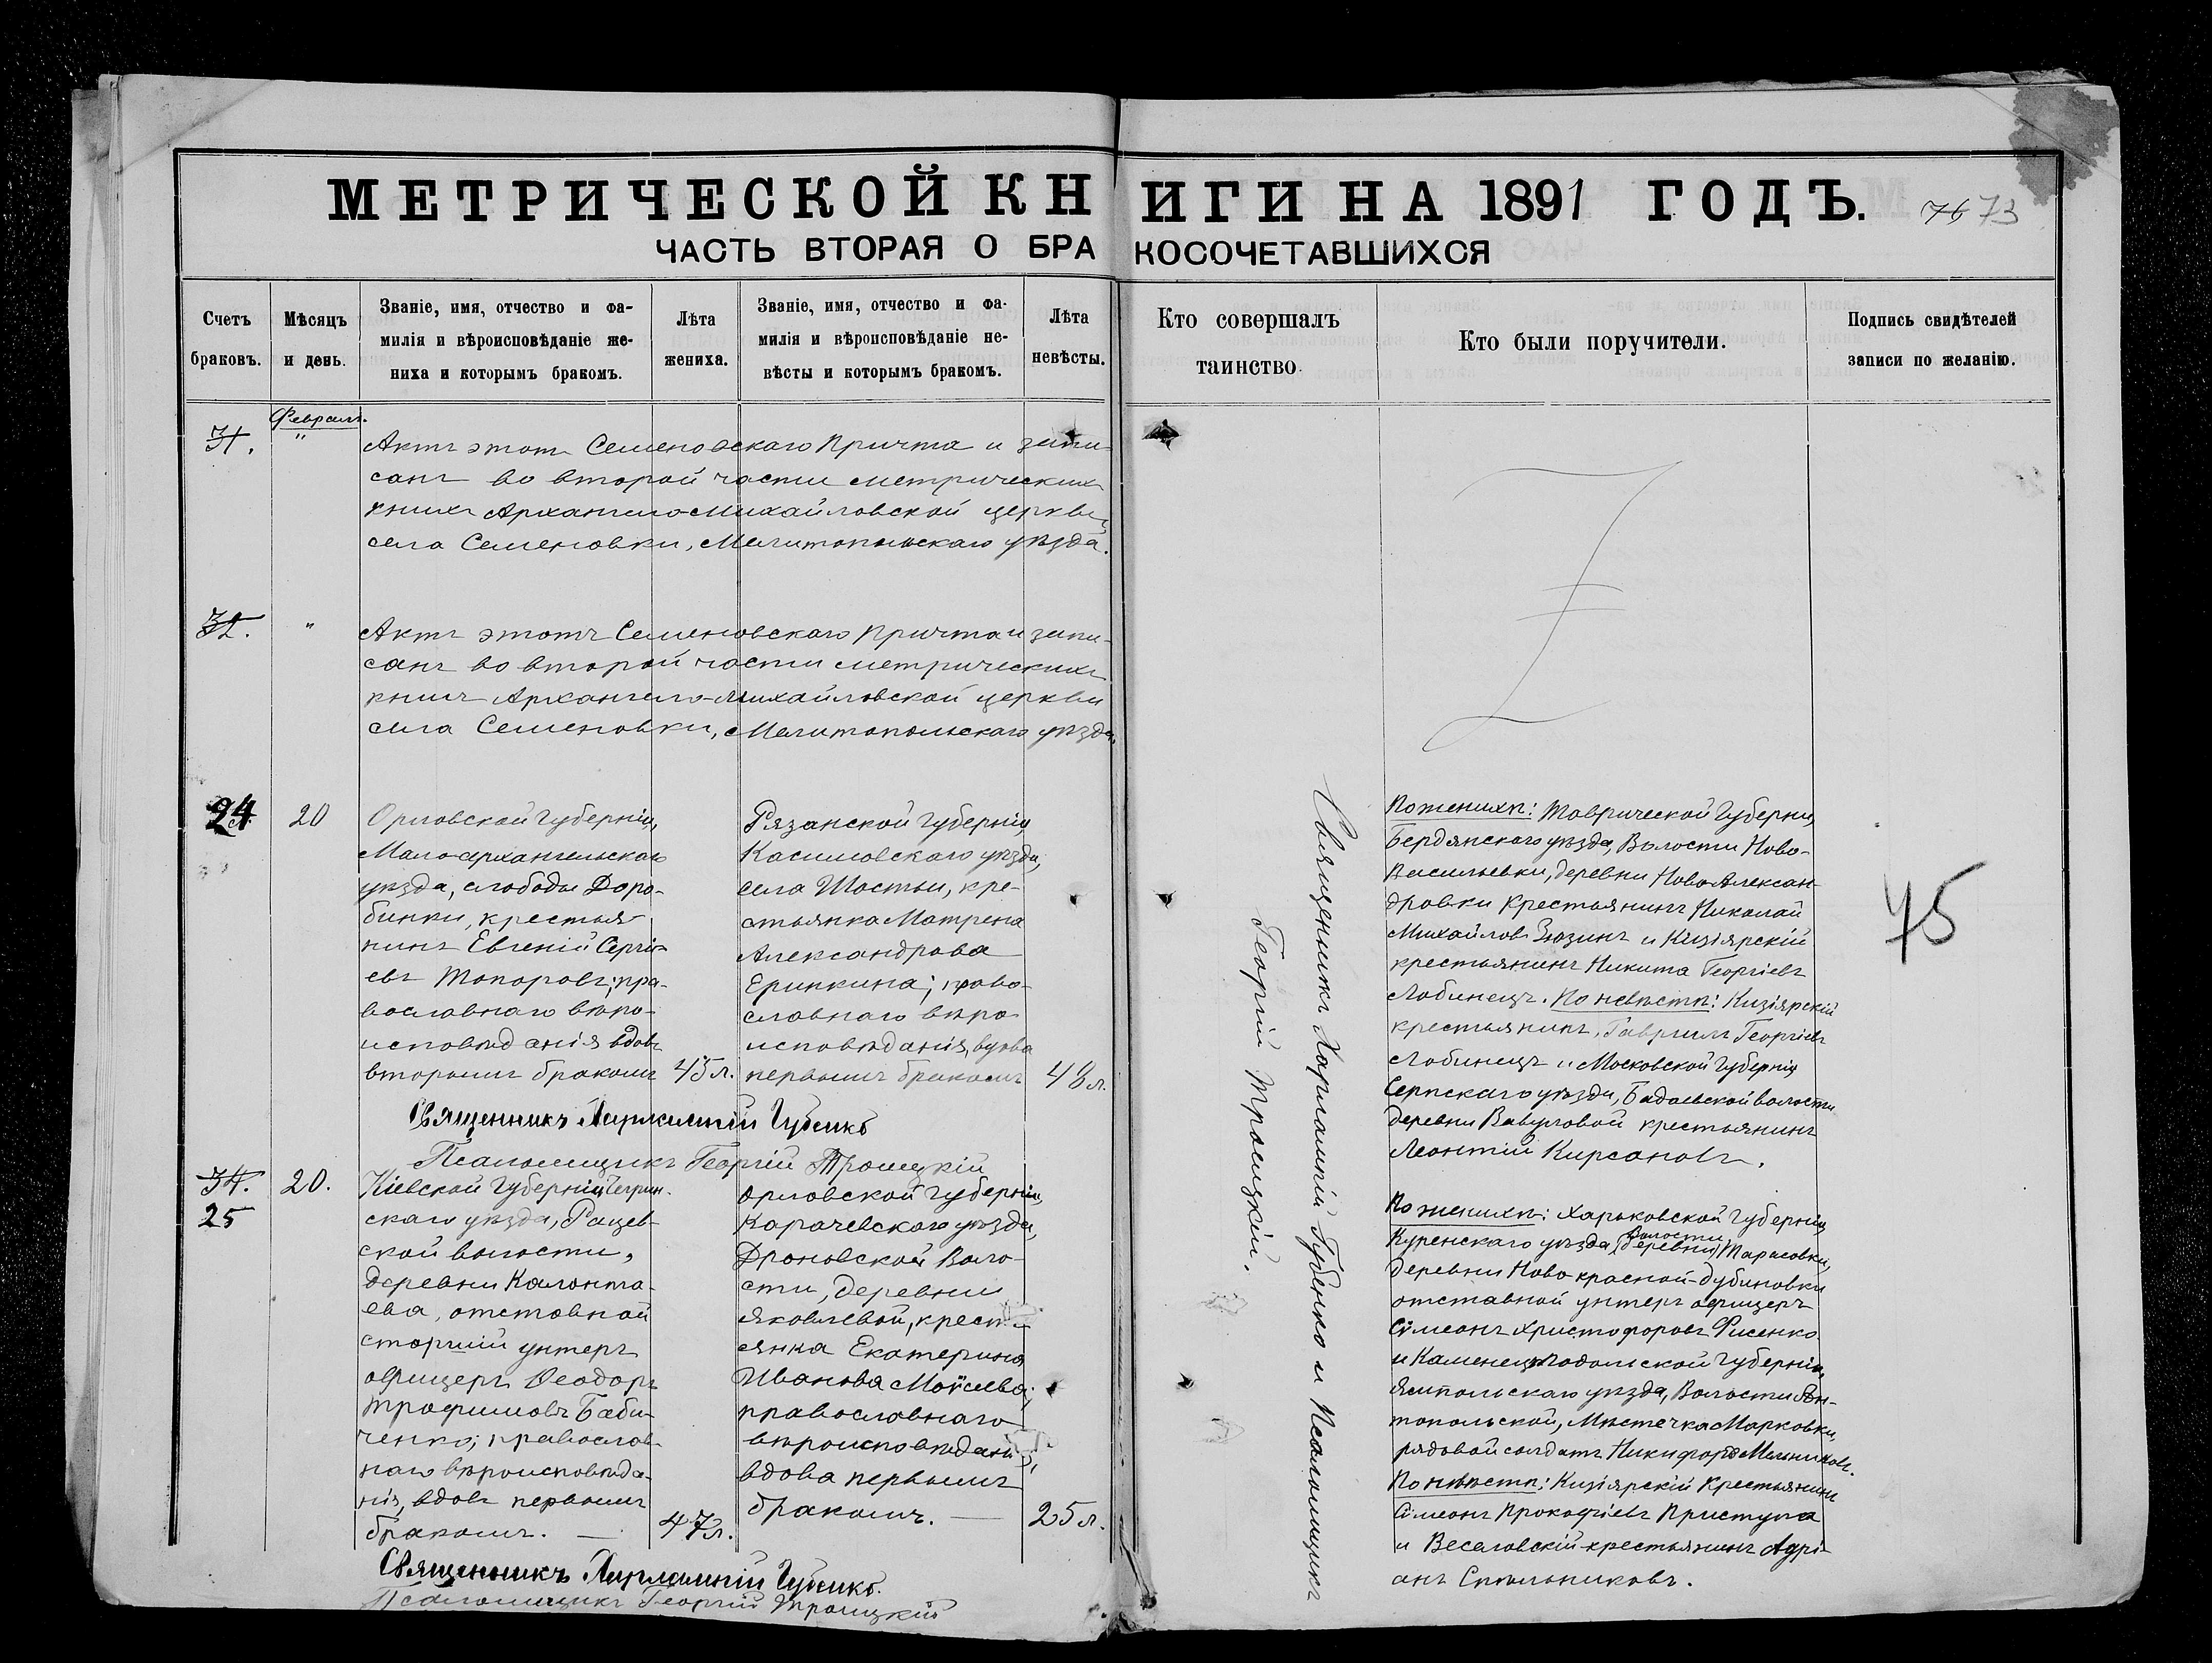 МЕТРИЧЕСКОЙ КНИГИ НА 1891 ГОДЪ.
76 73
ЧАСТЬ ВТОРАЯ О БРАКОСОЧЕТАВШИХСЯ
Счетъ
браковъ.
Мѣсяцъ
и день.
Званіе, имя, отчество и фа-
милія и вѣроисповѣданіе же-
ниха и которымъ бракомъ.
Лѣта
жениха.
Званіе, имя, отчество и фа-
милія и вѣроисповѣданіе не-
вѣсты и которымъ бракомъ.
Лѣта
невѣсты.
Кто совершалъ
таинство.
Кто были поручители.
Подпись свидѣтелей
записи по желанію.
Февраль.
31.
"
Актъ этотъ Семеновскаго Причта и запи-
санъ во второй части метрическихъ
книгъ Архангело-Михайловской церкви
села Семеновки, Мелитопольскаго уѣзда.
32.
"
Актъ этотъ Семеновскаго Причта и запи-
санъ во второй части метрическихъ
книгъ Архангело-Михайловской церкви
села Семеновки, Мелитопольскаго уѣзда.
24
20
Орловской Губерніи,
Мало-архангельскаго
уѣзда, слободы Доро-
бинки, крестья-
нинъ Евгеній Сергіе-
евъ Топоровъ; пра-
вославнаго вѣро-
исповѣданія вдовъ
вторымъ бракомъ
45 л.
Рязанской Губерніи
Касимовскаго уѣзда,
села Шостьи, кре-
стьянка Матрена
Александрова
Ерипкина; право-
славнаго вѣро-
исповѣданія, вдова
первымъ бракомъ
48 л.
Священникъ Харлампій Губенко
Псаломщикъ Георгій Троицкій
Священникъ Харлампій Губенко и Псаломщикъ
Георгій Троицкій.
По женихѣ: Таврической Губерніи,
Бердянскаго уѣзда, Волости Ново-
Васильевки, деревни Ново Алексан-
дровки крестьянинъ Николай
Михайловъ Зюзинъ и Кизіярскій
крестьянинъ Никита Георгіевъ
Лобинецъ. По невѣстѣ: Кизіярскій
крестьянинъ, Гавріилъ Георгіевъ
Лобинецъ и Московской Губерніи
Серпскаго уѣзда, Бадаевской волости
деревни Вавуловой крестьянинъ
Леонтій Кирсановъ.
75
34.
25
20.
Кіевской Губерніи Чегрин-
скаго уѣзда, Рацев-
ской волости,
деревни Калонта-
ева, отставной
старшій унтеръ
офицеръ Ѳеодоръ
Трофимовъ Баби-
ченко; православ-
наго вѣроисповѣда-
нія, вдовъ первымъ
бракомъ. —
47 л.
Орловской Губерніи,
Карачевскаго уѣзда,
Дроновской Воло-
сти, деревни
Яковлевой, крест-
янка Екатерина
Иванова Моисеева;
православнаго
вѣроисповѣданія,
вдова первымъ
бракомъ. —
25 л.
Священникъ Харлампій Губенко.
Псаломщикъ Георгій Троицкій
По женихѣ: Харьковской Губерніи,
Волости
Купенскаго уѣзда, (деревни) Тарасовки,
деревни Ново красной-Дубиновки
отставной унтеръ офицеръ
Симеонъ Христофоровъ Фисенко
и Каменецъ Подольской Губерніи,
Ямпольскаго уѣзда, Волости Ан-
топольской, Мѣстечка Марковки,
рядовой солдатъ Никифоръ Мельниковъ.
По невѣстѣ: Кизіярскій Крестьянинъ
Симеонъ Прокофіевъ Приступа
и Веселовскій крестьянинъ Адрі-
анъ Стельниковъ.